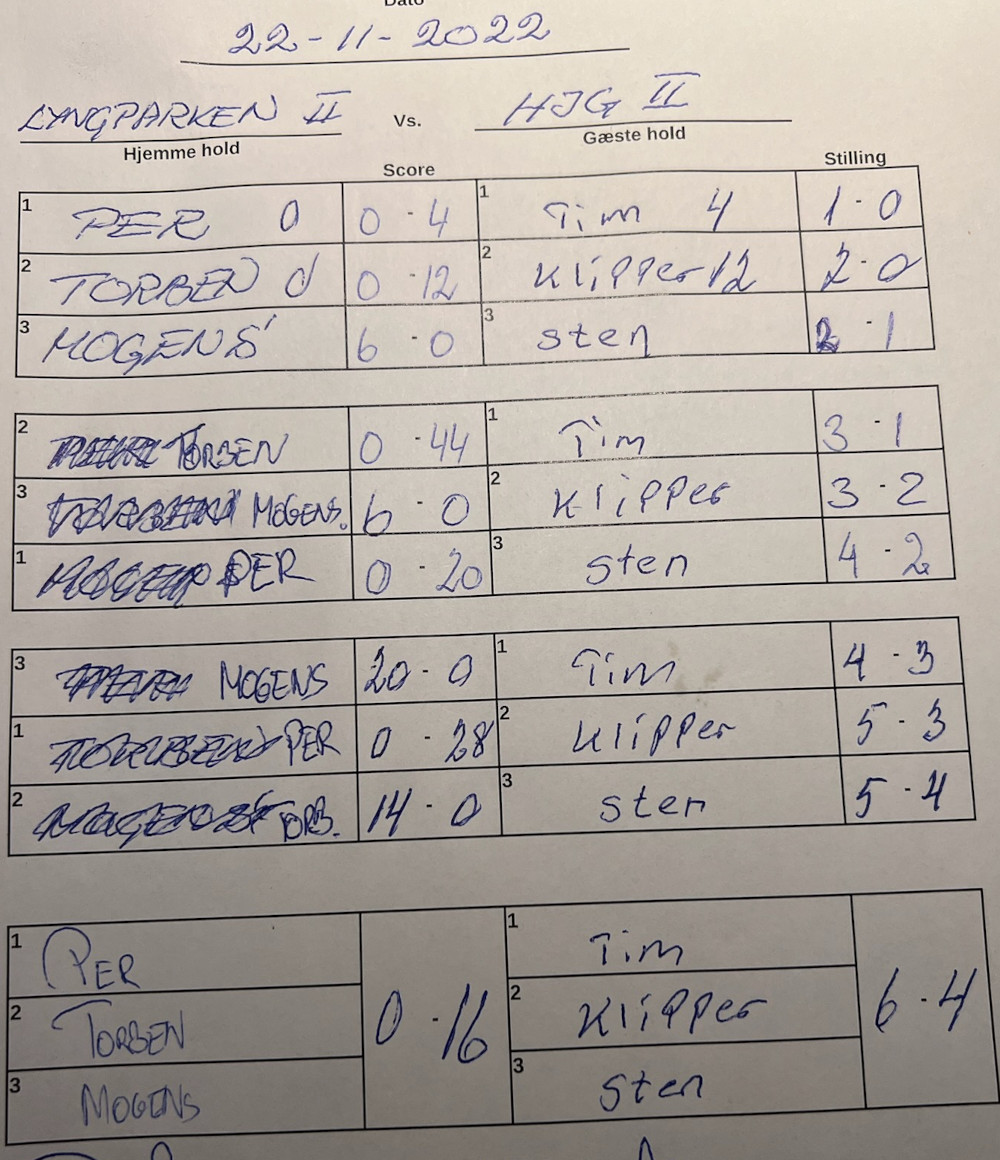 Dato
22-11-2022
LYNGPARKEN II Vs. HJG II
Hjemme hold Gæste hold
Score Stilling
1 PER 0 0 - 4 1 Tim 4 1 - 0
2 TORBEN 0 0 12 2 Klipper 12 2 - 0
3 MOGENS 6 - 0 3 sten 2 - 1
2 TORBEN 0 - 44 1 Tim 3 - 1
3 MOGENS. 6 - 0 2 Klipper 3 - 2
1 PER 0 - 20 3 sten 4 - 2
3 MOGENS 20 - 0 1 Tim 4 - 3
1 PER 0 - 28 2 Klipper 5 - 3
2 TORB. 14 - 0 3 sten 5 - 4
1 PER 1 Tim
2 TORBEN 0 - 16 2 Klipper 6 - 4
3 MOGENS 3 sten